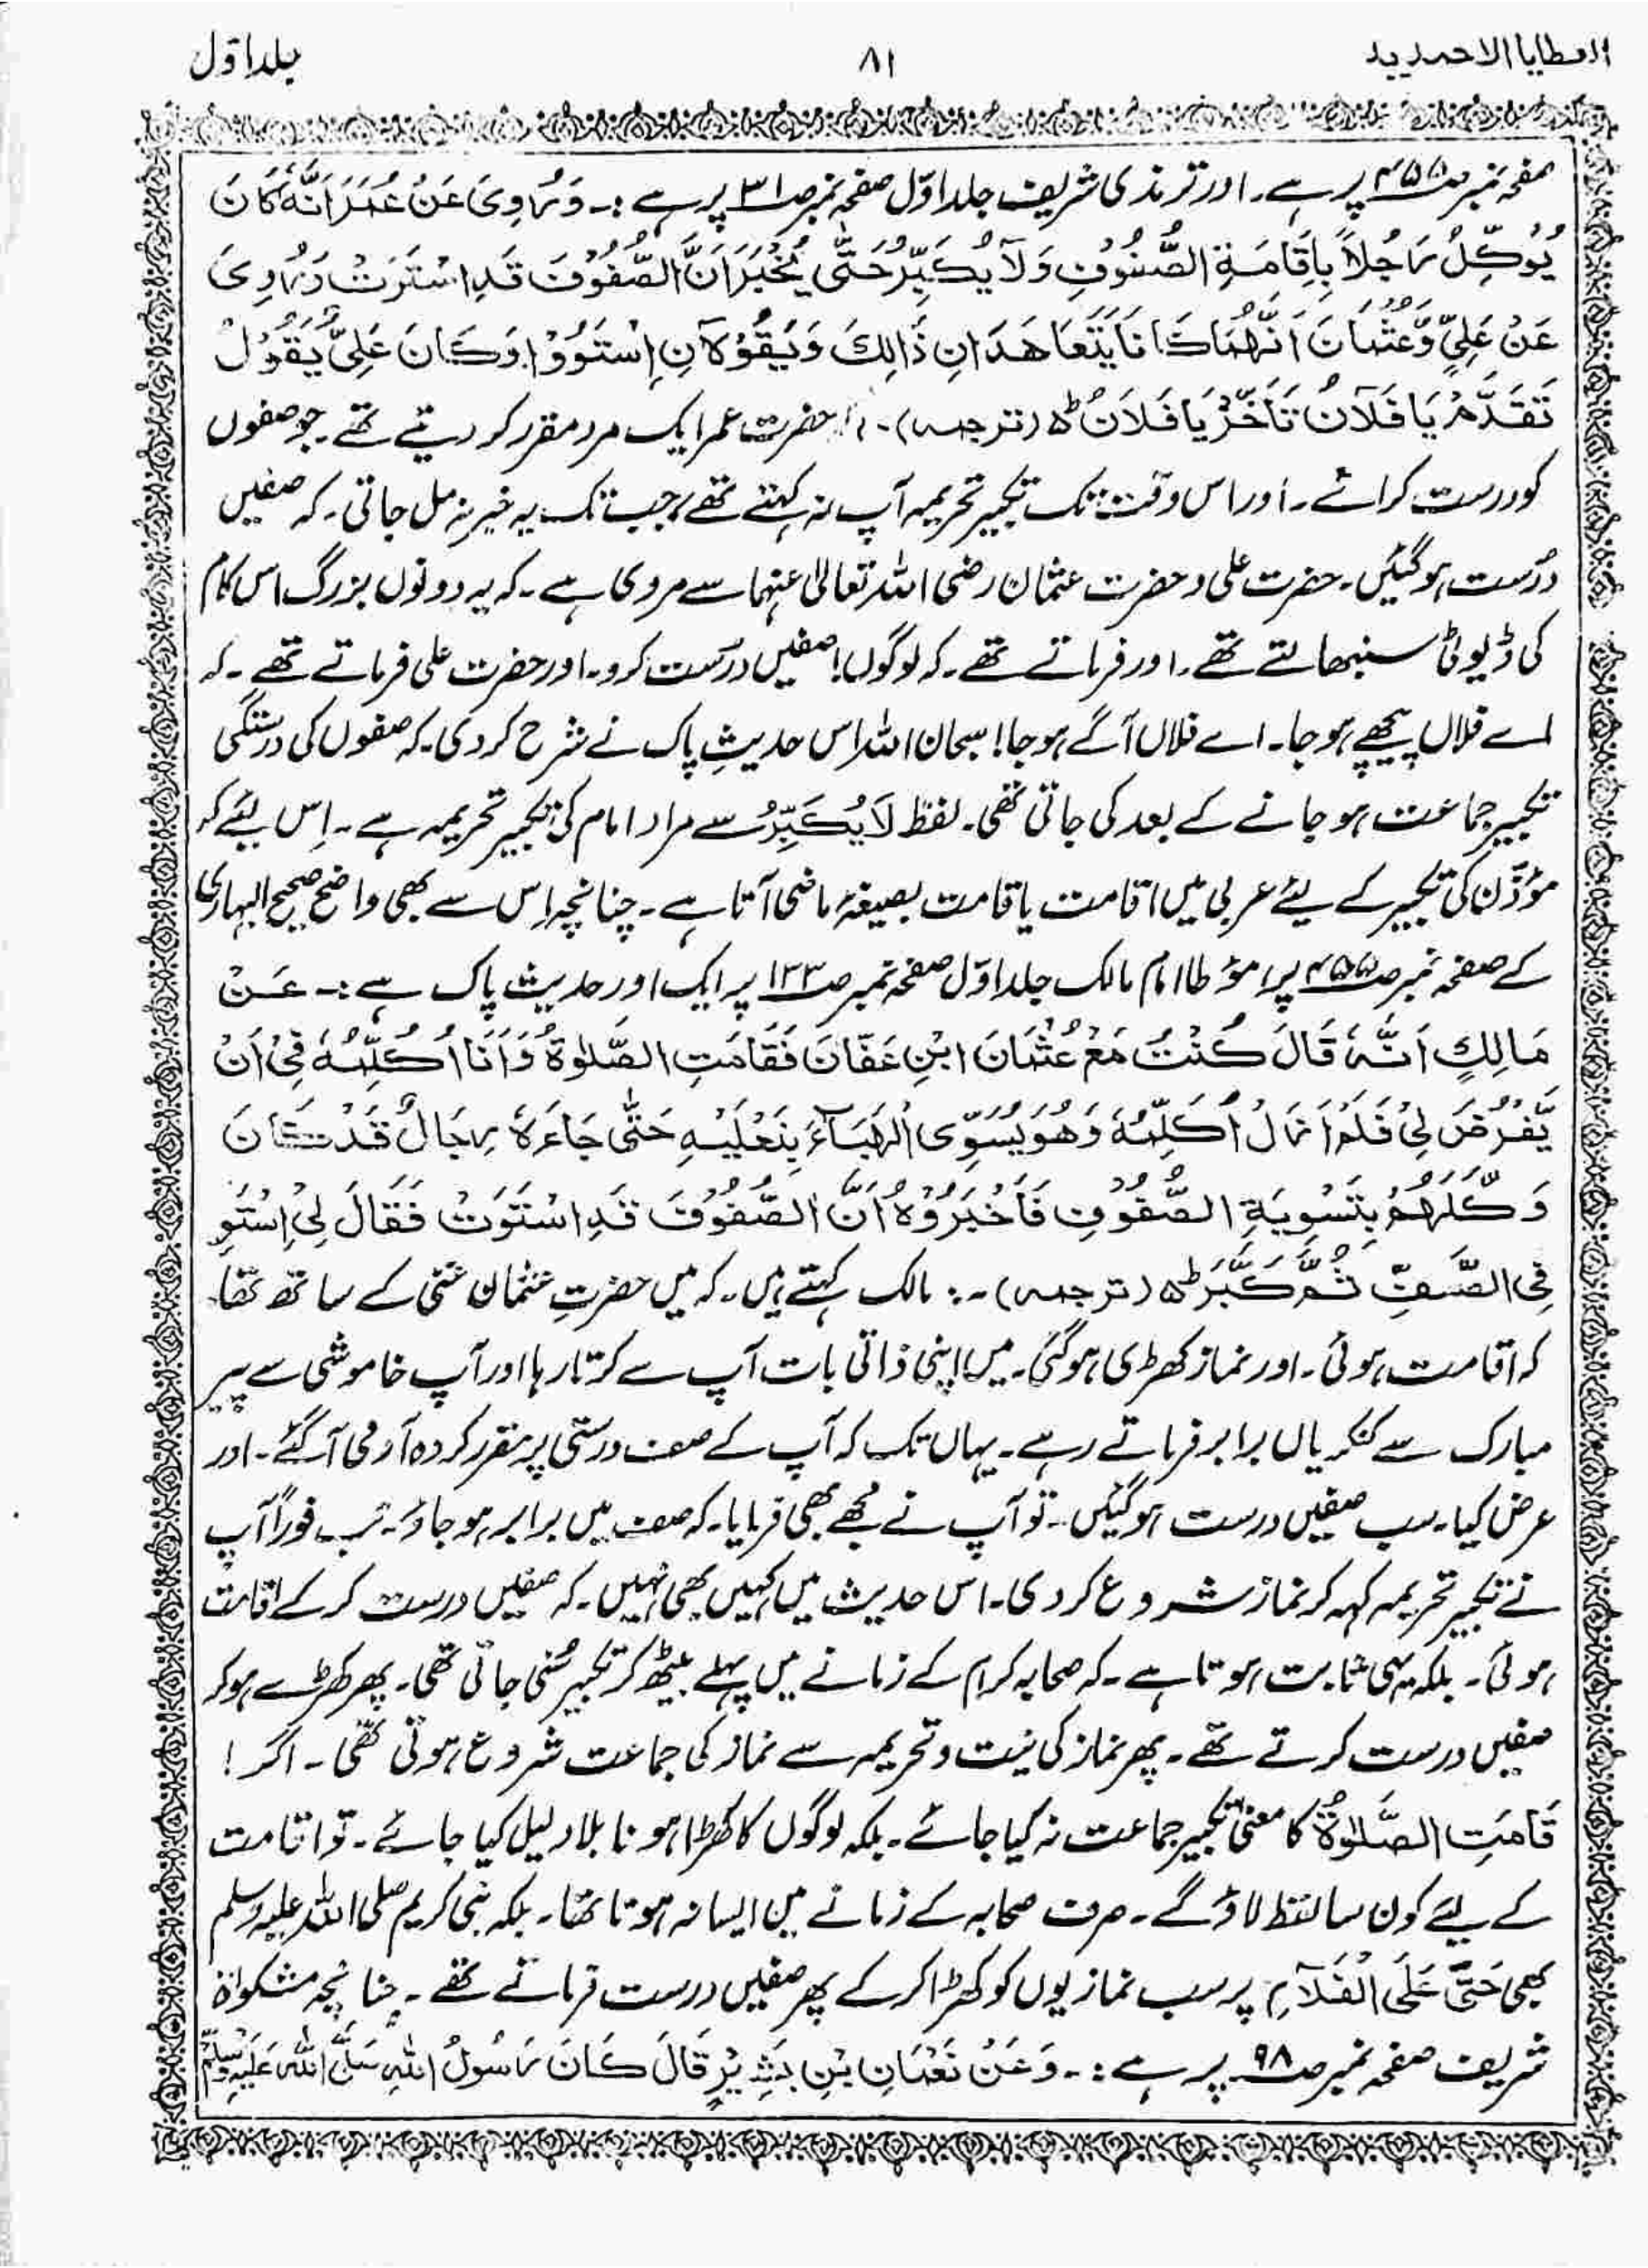 العطایا الاحمدیہ
۸۱
جلد اوّل
صفحہ نمبر صـ۴۵۵ پر ہے۔ اور ترمذی شریف جلد اوّل صفحہ نمبر صـ۳۱ پر ہے :۔ وَرُوِیَ عَنْ عُمَرَ اَنَّہٗ کَانَ
یُوَکِّلُ رَجُلاً بِاِقَامَۃِ الصُّفُوْفِ وَلَا یُکَبِّرُ حَتّٰی یُخْبَرَ اَنَّ الصُّفُوْفَ قَدِ اسْتَوَتْ وَرُوِیَ
عَنْ عَلِیٍّ وَّعُثْمَانَ اَنَّہُمَا کَانَا یَتَعَاھَدَانِ ذَالِکَ وَیَقُوْلَانِ اِسْتَوُوْا وَکَانَ عَلِیٌّ یَقُوْلُ
تَقَدَّمْ یَا فَلَانُ تَأَخَّرْ یَا فَلَانُ ؕ (ترجمہ)۔ حضرت عمر ایک مرد مقرر کر دیتے تھے۔ جو صفوں
کو درست کرائے۔ اور اس وقت تک تکبیر تحریمہ آپ نہ کہتے تھے، جب تک یہ خبر نہ مل جاتی۔ کہ صفیں
درُست ہو گئیں۔ حضرت علی و حضرت عثمان رضی اللہ تعالیٰ عنہما سے مروی ہے۔ کہ یہ دونوں بزرگ اس کام
کی ڈیوٹی سنبھالتے تھے۔ اور فرماتے تھے۔ کہ لوگوں! صفیں درُست کرو۔ اور حضرت علی فرماتے تھے۔ کہ
اے فلاں پیچھے ہو جا۔ اے فلاں آگے ہو جا! سبحان اللہ اس حدیثِ پاک نے شرح کر دی۔ کہ صفوں کی درستگی
تکبیر جماعت ہو جانے کے بعد کی جاتی تھی۔ لفظ لَا یُکَبِّرُ سے مراد امام کی تکبیر تحریمہ ہے۔ اِس لیئے کہ
مؤذّن کی تکبیر کے لیئے عربی میں اقامت یا قامت بصیغۂ ماضی آتا ہے۔ چنانچہ اِس سے بھی واضح صحیح البہاری
کے صفحہ نمبر صـ۴۵۵ پر اور مؤطا امام مالک جلد اوّل صفحہ نمبر صـ۱۳۳ پر ایک اور حدیث پاک ہے :۔ عَنْ
مَالِکٍ اَنَّہٗ قَالَ کُنْتُ مَعْ عُثْمَانَ ابْنِ عَفَّانَ فَقَامَتِ الصَّلوٰۃُ وَاَنَا اُکَلِّمُہٗ فِیْ اَنْ
یَّفْرُضَ لِیْ فَلَمْ اَزَلْ اُکَلِّمُہٗ وَھُوَ یُسَوِّی الْہَبَآءَ بِنَعْلَیْہِ حَتّٰی جَاءَہٗ رِجَالٌ قَدْ کَانَ
وَکَّلَہُمْ بِتَسْوِیَۃِ الصُّفُوْفِ فَاَخْبَرُوْہُ اَنَّ الصُّفُوْفَ قَدِ اسْتَوَتْ فَقَالَ لِیْ اِسْتَوِ
فِی الصَّفِّ ثُمَّ کَبَّرَ ؕ (ترجمہ)۔: مالک کہتے ہیں۔ کہ میں حضرتِ عثمان غنی کے ساتھ تھا۔
کہ اقامت ہوئی۔ اور نماز کھڑی ہو گئی۔ میں اپنی ذاتی بات آپ سے کرتا رہا اور آپ خاموشی سے پیر
مبارک سے کنکریاں برابر فرماتے رہے۔ یہاں تک کہ آپ کے صف درستی پر مقرر کردہ آدمی آ گئے۔ اور
عرض کیا۔ سب صفیں درست ہو گئیں۔ تو آپ نے مُجھے بھی فرمایا۔ کہ صف میں برابر ہو جاؤ۔ تب فوراً آپ
نے تکبیر تحریمہ کہہ کر نماز شروع کر دی۔ اس حدیث میں کہیں بھی نہیں۔ کہ صفیں درست کر کے اقامت
ہوئی۔ بلکہ یہی ثابت ہوتا ہے۔ کہ صحابہ کرام کے زمانے میں پہلے بیٹھ کر تکبیر سُنی جاتی تھی۔ پھر کھڑے ہو کر
صفیں درست کرتے تھے۔ پھر نماز کی نیت و تحریمہ سے نماز کی جماعت شروع ہوتی تھی۔ اگر!
قَامَتِ الصَّلوٰۃُ کا معنیٰ تکبیر جماعت نہ کیا جائے۔ بلکہ لوگوں کا کھڑا ہونا بلا دلیل کیا جائے۔ تو اقامت
کے لیئے کون سا لفظ لاؤ گے۔ صرف صحابہ کے زمانے میں ایسا نہ ہوتا تھا۔ بلکہ نبی کریم صلی اللہ علیہ وسلم
بھی حَتّٰی عَلَی الْفَلَآحِ پر سب نمازیوں کو کھڑا کر کے پھر صفیں درست فرماتے تھے۔ چنانچہ مشکوٰۃ
شریف صفحہ نمبر صـ۹۸ پر ہے :۔ وَعَنْ نُعْمَانِ بْنِ بَشِیْرٍ قَالَ کَانَ رَسُولُ اللہِ صَلَّی اللہ عَلَیْہِ وَسَلَّمَ